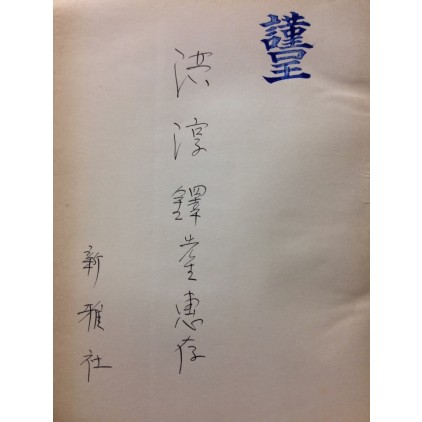 謹呈
洪淳鐸惠存
新雅社